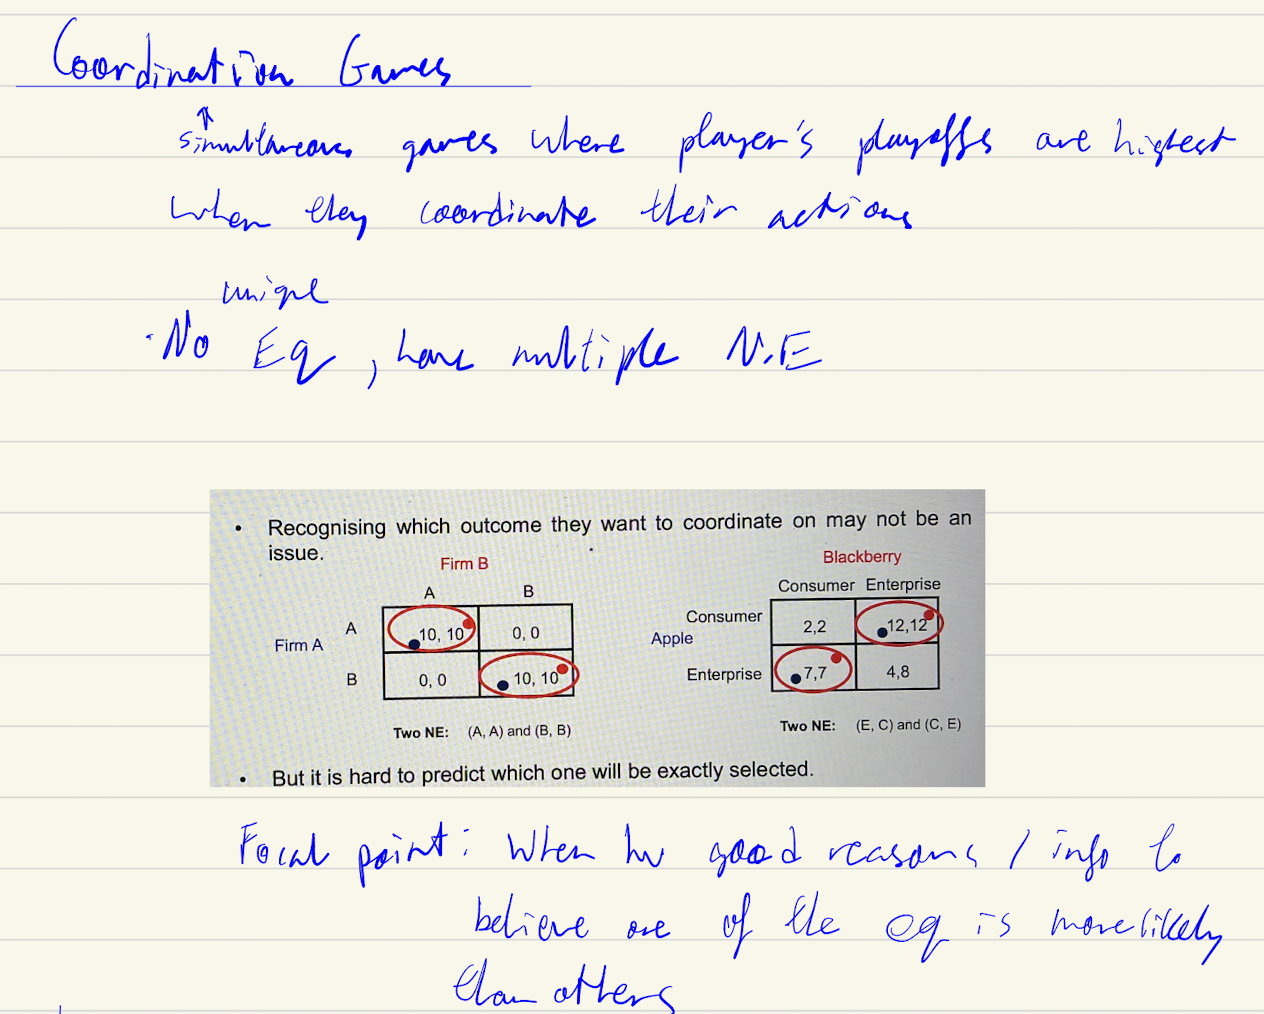 Coordination Games
simultaneous games where player's playoffs are highest
when they coordinate their actions
unique
· No Eq, have multiple N.E
• Recognising which outcome they want to coordinate on may not be an
issue.
Firm B
A B
Firm A
A 10, 10 0, 0
B 0, 0 10, 10
Two NE: (A, A) and (B, B)
Blackberry
Consumer Enterprise
Apple
Consumer 2,2 12,12
Enterprise 7,7 4,8
Two NE: (E, C) and (C, E)
• But it is hard to predict which one will be exactly selected.
Focal point: When good reasons / info to
believe one of the eq is more likely
than others